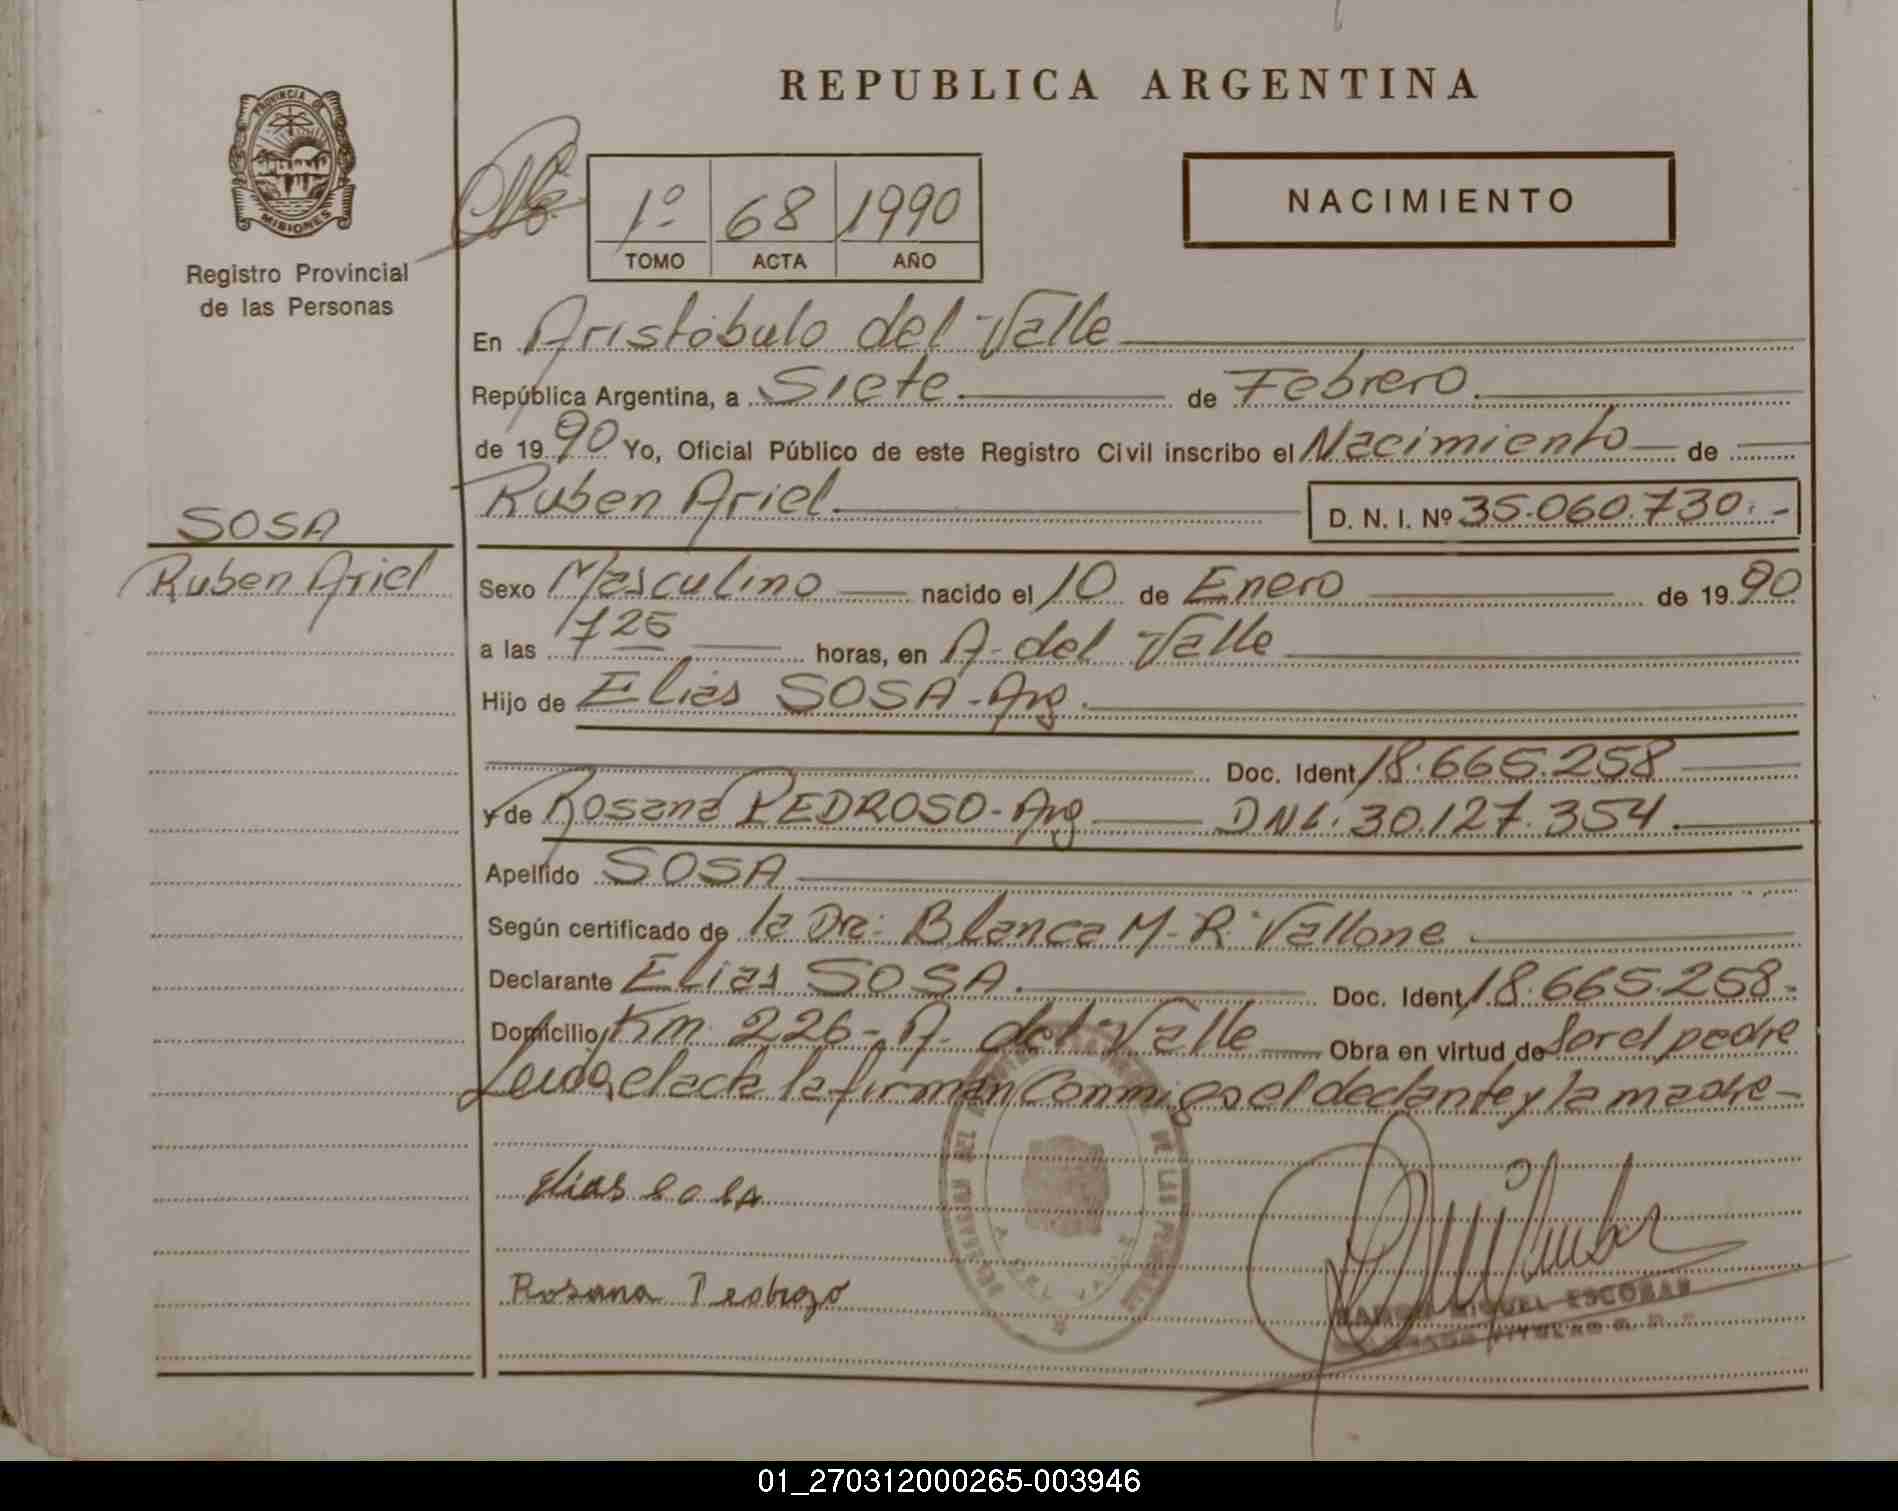 REPUBLICA ARGENTINA
PROVINCIA DE
MISIONES
Registro Provincial
de las Personas
1º TOMO
68 ACTA
1990 AÑO
NACIMIENTO
En Aristóbulo del Valle
República Argentina, a Siete de Febrero
de 1990 Yo, Oficial Público de este Registro Civil inscribo el Nacimiento de
Ruben Ariel D. N. I. Nº 35.060.730.-
SOSA
Ruben Ariel
Sexo Masculino nacido el 10 de Enero de 1990
a las 725 horas, en A. del Valle
Hijo de Elias SOSA - Arg.
Doc. Ident 18.665.258
y de Rosana PEDROSO - Arg DNI. 30.127.354
Apellido SOSA
Según certificado de la Dra. Blanca M. R. Vallone
Declarante Elias SOSA. Doc. Ident 18.665.258-
Domicilio Km. 226 - A. del Valle Obra en virtud de Ser el padre
Leida el acta la firman Conmigo el declante y la madre -
elias sosa
Rosana Pedrozo
DE LAS
MIGUEL ESCOBAR
01_270312000265-003946